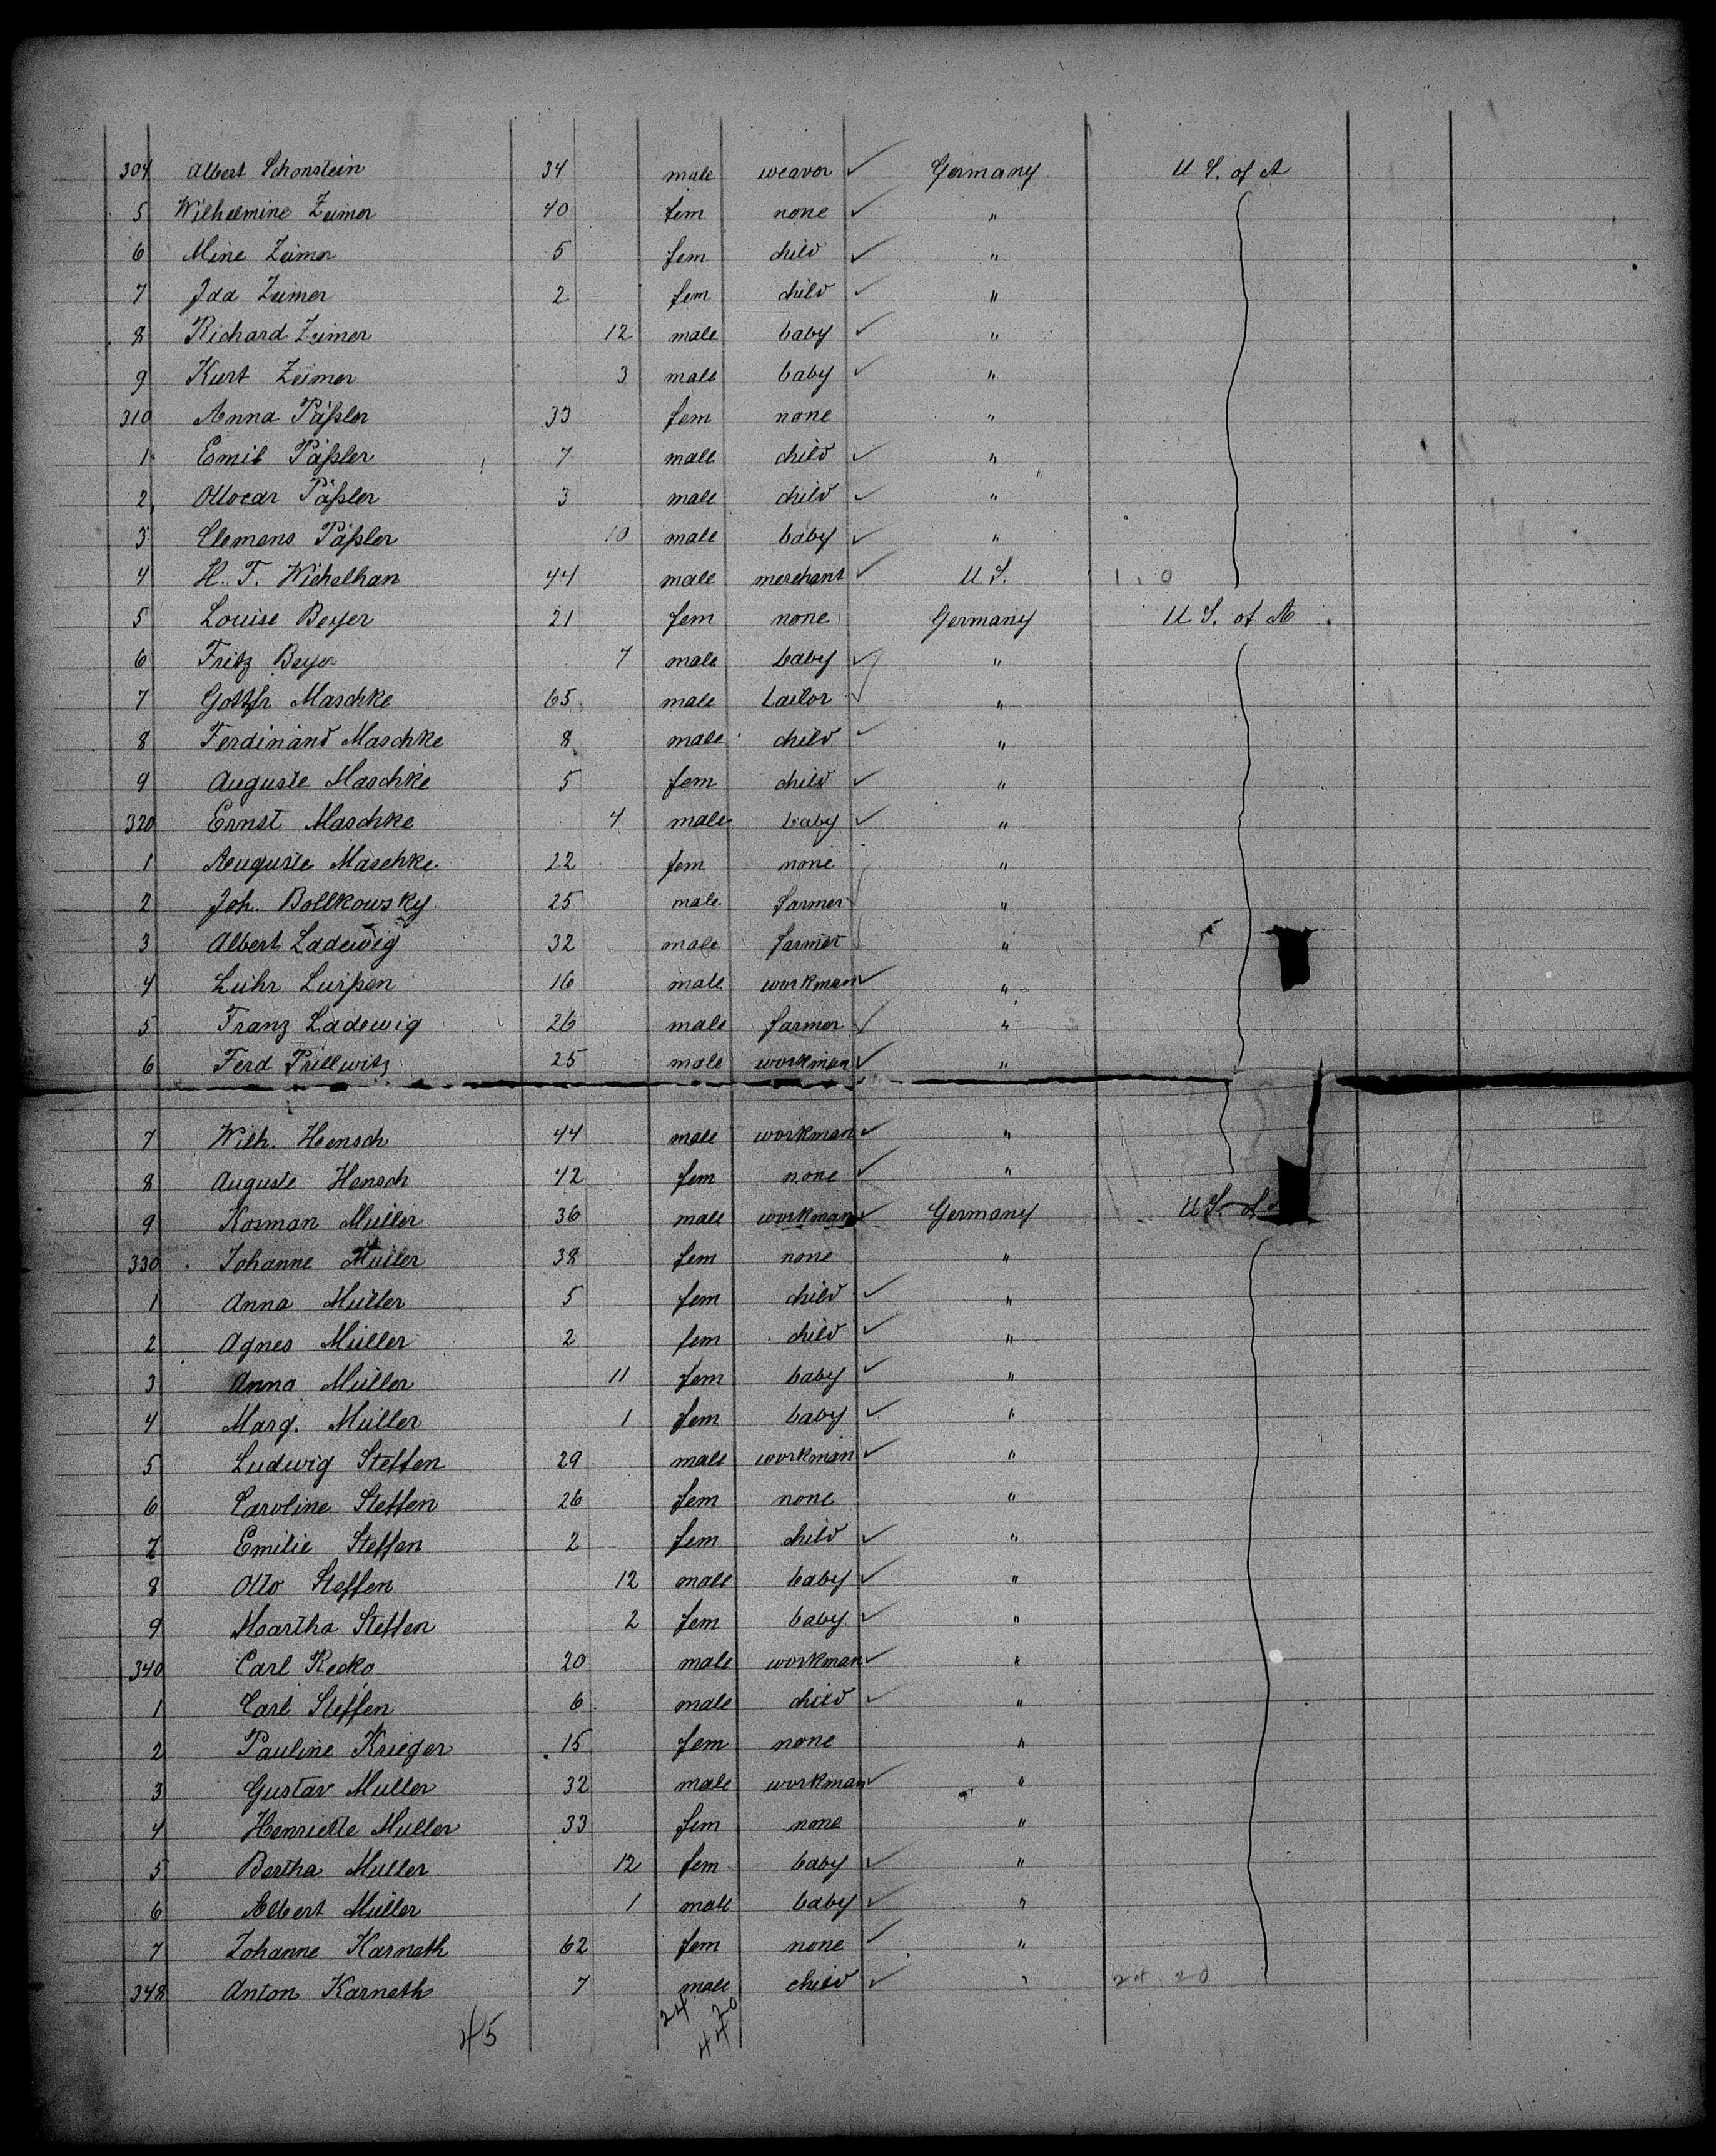 304 Albert Schonstein 34 male weaver ✓ Germany U S. of A
5 Wilhelmine Zeimer 40 fem none ✓ "
6 Mine Zeimer 5 fem child ✓ "
7 Ida Zeimer 2 fem child ✓ "
8 Richard Zeimer 12 male baby ✓ "
9 Kurt Zeimer 3 male baby ✓ "
310 Anna Päßler 33 fem none "
1 Emil Päßler 7 male child ✓ "
2 Ottocar Päßler 3 male child ✓ "
3 Clemens Päßler 10 male baby ✓ "
4 H. T. Wichelhan 44 male merchant ✓ U S. 1 . 0
5 Louise Beyer 21 fem none Germany U S. of A
6 Fritz Beyer 7 male baby ✓ "
7 Gottfr Maschke 65 male tailor ✓ "
8 Ferdinand Maschke 8 male child ✓ "
9 Auguste Maschke 5 fem child ✓ "
320 Ernst Maschke 4 male baby ✓ "
1 Auguste Maschke 22 fem none "
2 Joh. Bollkowsky 25 male farmer "
3 Albert Ladewig 32 male farmer "
4 Luhr Luißen 16 male workman ✓ "
5 Franz Ladewig 26 male farmer ✓ "
6 Ferd Prillwitz 25 male workman ✓ "
7 Wilh. Hensch 44 male workman ✓ "
8 Auguste Hensch 42 fem none ✓ "
9 Kosman Müller 36 male workman ✓ Germany U S. of
330 Johanne Müller 38 fem none "
1 Anna Müller 5 fem child ✓ "
2 Agnes Müller 2 fem child ✓ "
3 Anna Müller 11 fem baby ✓ "
4 Marg. Müller 1 fem baby ✓ "
5 Ludwig Steffen 29 male workman ✓ "
6 Caroline Steffen 26 fem none "
7 Emilie Steffen 2 fem child ✓ "
8 Otto Steffen 12 male baby ✓ "
9 Maartha Steffen 2 fem baby ✓ "
340 Carl Recko 20 male workman ✓ "
1 Carl Steffen 6 male child ✓ "
2 Pauline Krieger 15 fem none "
3 Gustav Muller 32 male workman ✓ "
4 Henriette Muller 33 fem none "
5 Bertha Muller 12 fem baby ✓ "
6 Albert Müller 1 male baby ✓ "
7 Johanne Karneth 62 fem none ✓ "
348 Anton Karneth 7 male child ✓ " 24 20
45 24 20
44